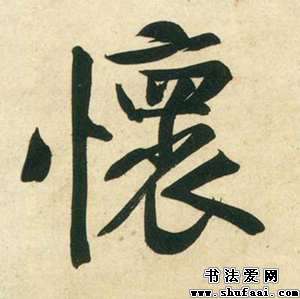 懷
书法爱网
www.shufaai.com